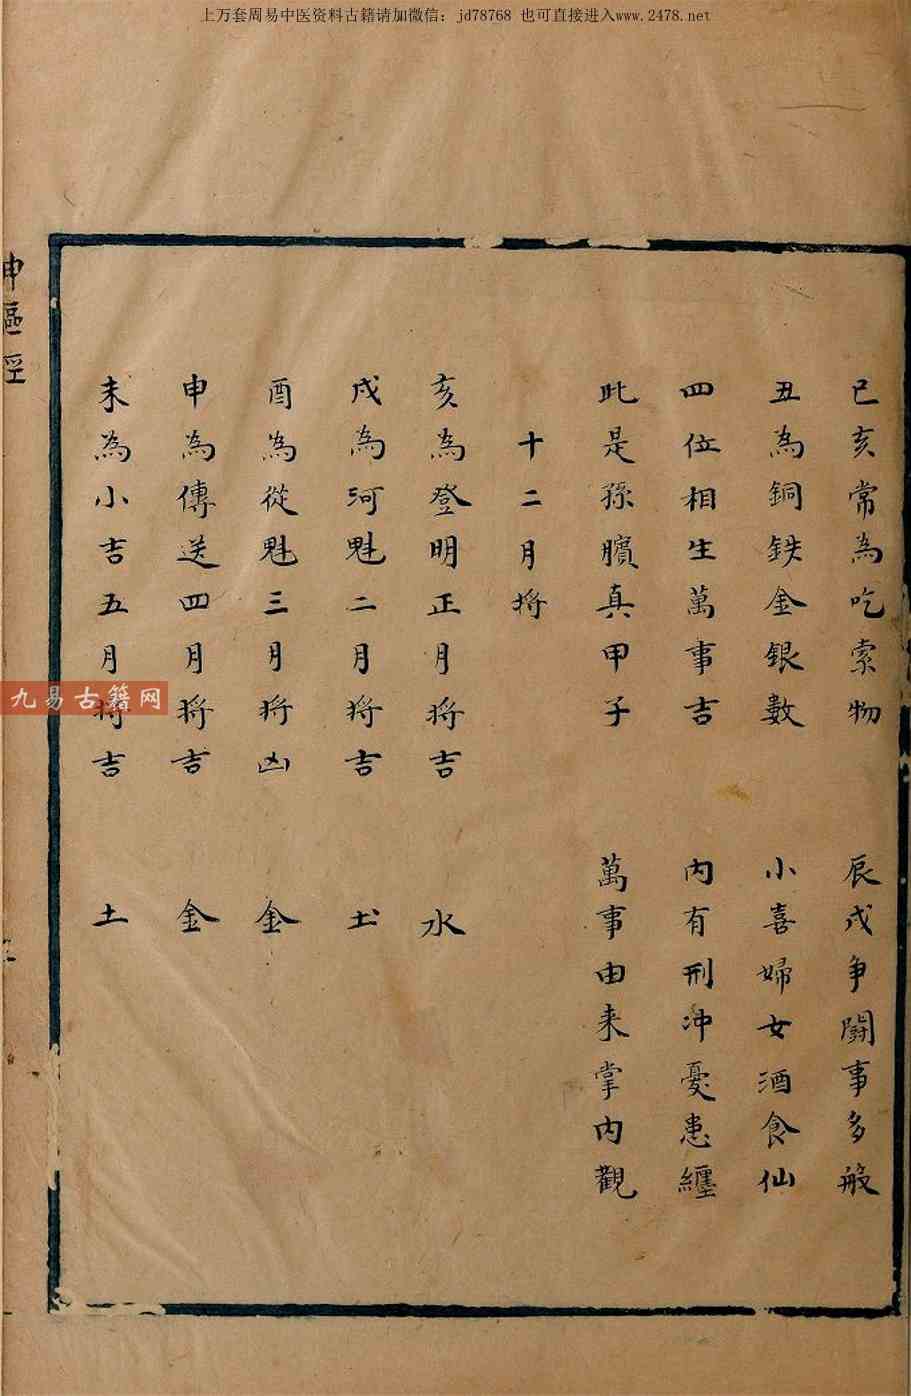 上万套周易中医资料古籍请加微信：jd78768 也可直接进入www.2478.net
巳亥常為吃索物 辰戌争鬪事多般
丑為銅鉄金銀數 小喜婦女酒食仙
四位相生萬事吉 内有刑冲憂患纏
此是孫臏真甲子 萬事由来掌内觀
十二月将
亥為登明正月将吉 水
戌為河魁二月将吉 土
酉為從魁三月将凶 金
申為傳送四月将吉 金
未為小吉五月将吉 土
樞經
九易古籍网